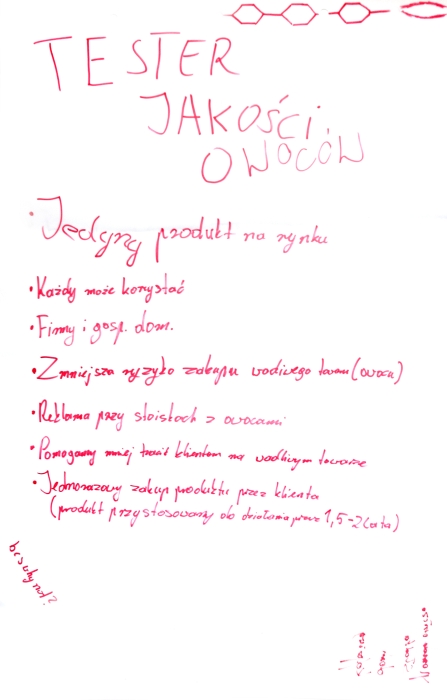 TESTER
JAKOŚCI
OWOCÓW
• Jedyny produkt na rynku
• Każdy może korzystać
• Firmy i gosp. dom.
• Zmniejsza ryzyko zakupu wadliwego towaru (owocu)
• Reklama przy stoiskach z owocami
• Pomagamy mniej tracić klientom na wadliwym towarze
• Jednorazowy zakup produktu przez klienta
(produkt przystosowany do działania przez 1,5-2 lata)